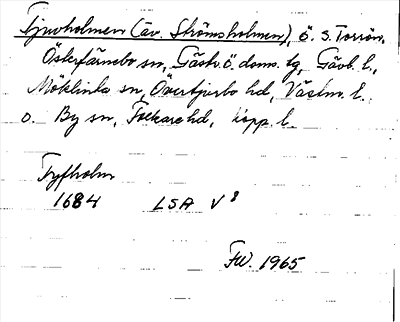 Tjuvholmen (äv. Strömsholmen), ö. S. Torrön,
Österfärnebo sn, Gästr. ö. doms. tg, Gävb. l.,
Möklinta sn, Övertjurbo hd, Västm. l.
o. By sn, Folkare hd, Kopp. l.
Tyfholm
1684 LSA V 8
FW. 1965